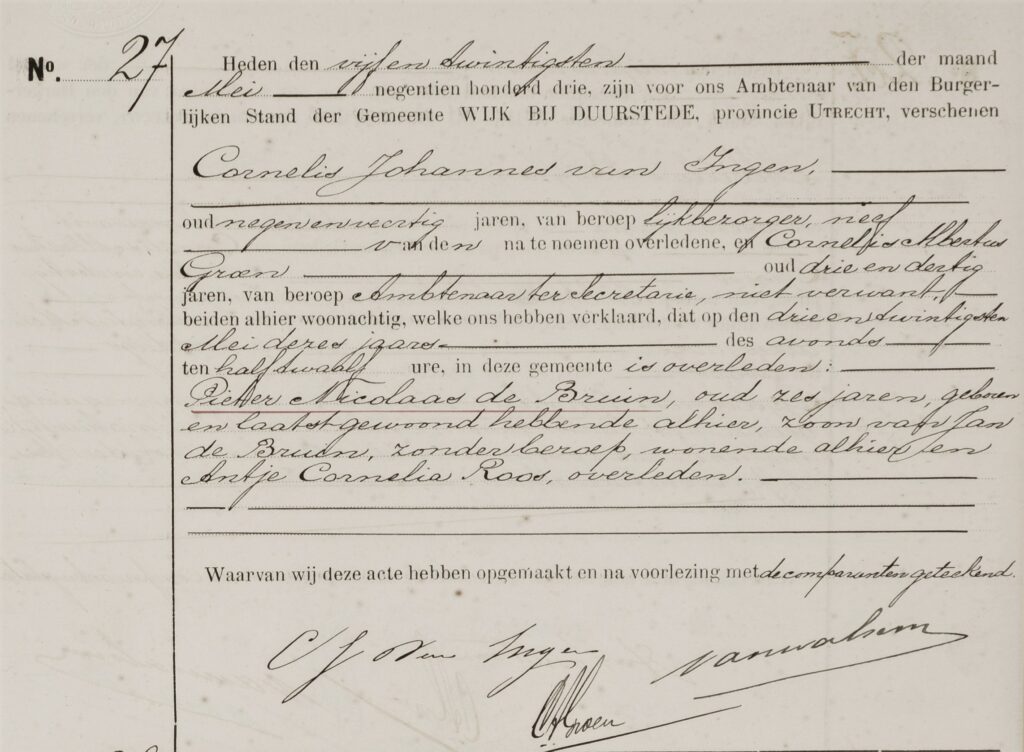 No. 27
Heden den vijf en twintigsten der maand
Mei negentien honderd drie, zijn voor ons Ambtenaar van den Burger-
lijken Stand der Gemeente WIJK BIJ DUURSTEDE, provincie UTRECHT, verschenen
Cornelis Johannes van Ingen,
oud negen en veertig jaren, van beroep lijkbezorger, neef
van den na te noemen overledene, en Cornelis Albertus
Groen oud drie en dertig
jaren, van beroep Ambtenaar ter Secretarie, niet verwant,
beiden alhier woonachtig, welke ons hebben verklaard, dat op den drie en twintigsten
Mei dezes jaars des avonds
ten half twaalf ure, in deze gemeente is overleden:
Pieter Nicolaas de Bruin, oud zes jaren, geboren
en laatst gewoond hebbende alhier, zoon van Jan
de Bruin, zonder beroep, wonende alhier en
Antje Cornelia Roos, overleden.
Waarvan wij deze acte hebben opgemaakt en na voorlezing met de comparanten geteekend.
C J van Ingen
van walsem
CAGroen